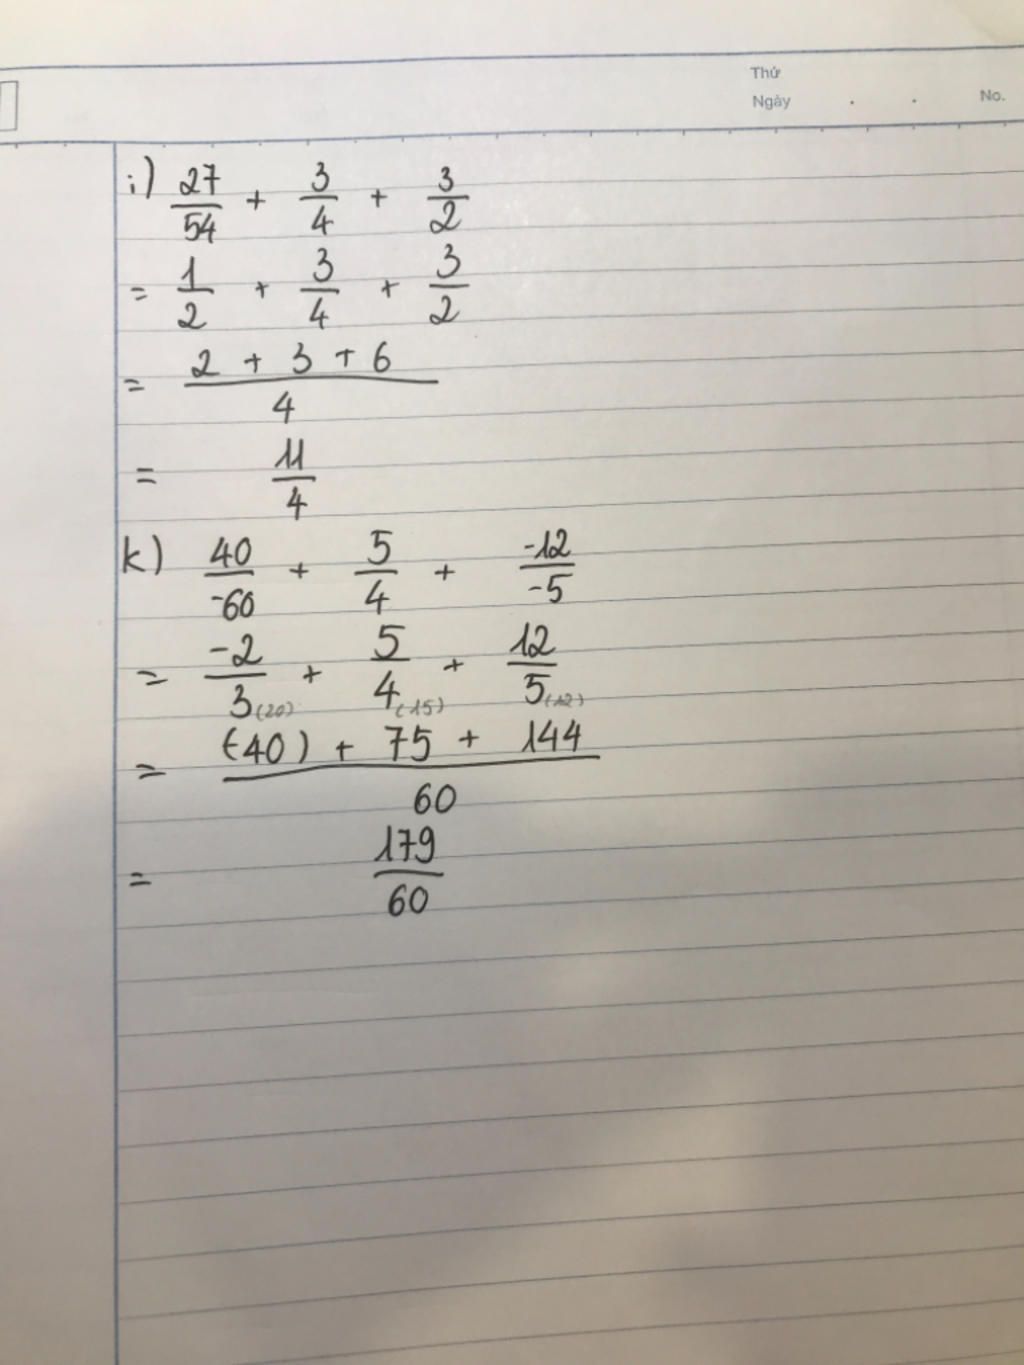 Thứ
Ngày . . No.
i) 27/54 + 3/4 + 3/2
= 1/2 + 3/4 + 3/2
= (2 + 3 + 6)/4
= 11/4
k) 40/-60 + 5/4 + -12/-5
= -2/3(20) + 5/4(15) + 12/5(12)
= ((-40) + 75 + 144)/60
= 179/60